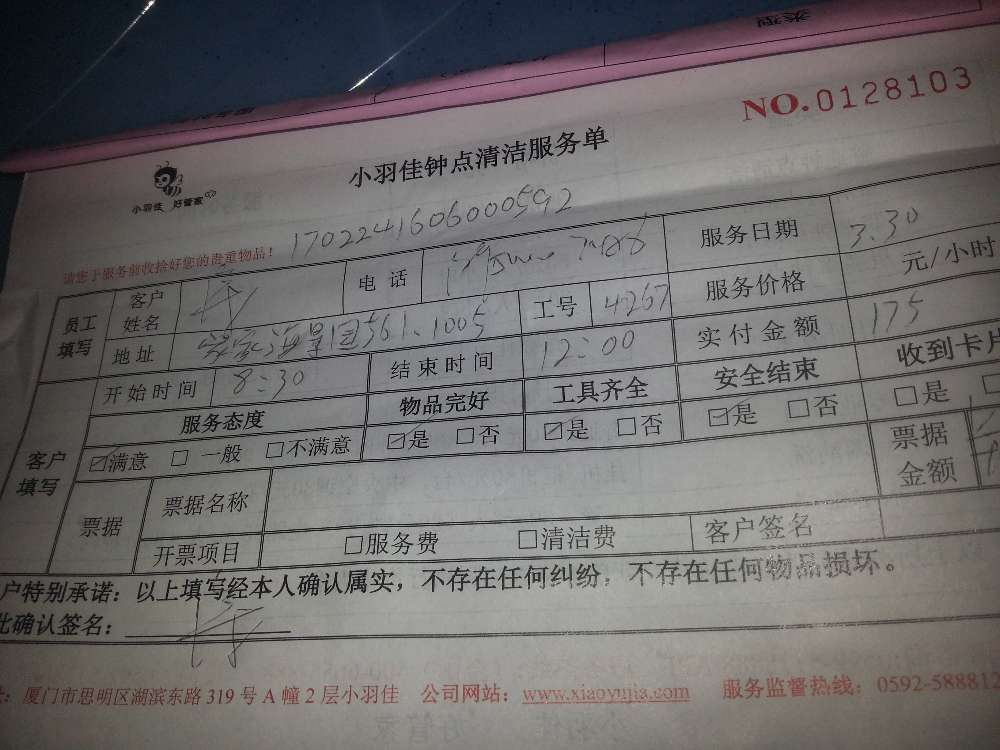 类型
NO.0128103
小羽佳钟点清洁服务单
小羽佳 好管家
1702241606000592
请您于服务前收拾好您的贵重物品!
员工填写 客户姓名 电话 服务日期 3.30
地址 景园561.1005 工号 4267 服务价格 元/小时
开始时间 8:30 结束时间 12:00 实付金额 175
客户填写 服务态度 物品完好 工具齐全 安全结束 收到卡片
☑满意 □一般 □不满意 ☑是 □否 ☑是 □否 ☑是 □否 □是 □
票据 票据名称 票据金额
开票项目 □服务费 □清洁费 客户签名
户特别承诺:以上填写经本人确认属实,不存在任何纠纷,不存在任何物品损坏。
此确认签名:
厦门市思明区湖滨东路 319 号 A 幢 2 层小羽佳 公司网站:www.xiaoyujia.com 服务监督热线:0592-588812